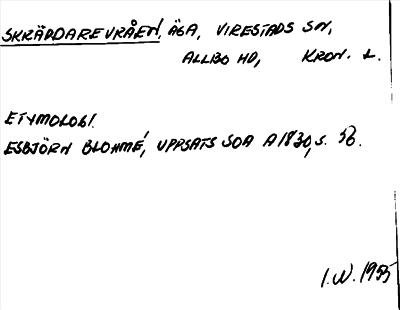 SKRÄDDAREVRÅEN, ÄGA, VIRESTADS SN,
ALLBO HD, KRON. L.
ETYMOLOGI.
ESBJÖRN BLOHMÉ, UPPSATS SOA A 1830, S. 56.
I.W. 1955